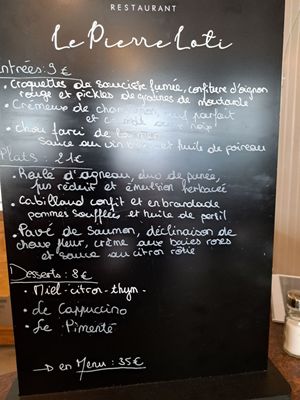 RESTAURANT
Le Pierre Loti
Entrées: 9 €
• Croquettes de saucisse fumée, confiture d'oignon
rouge et pickles de graines de moutarde
• Crémeux de champignon, œuf parfait
et
• Chou farci de la mer
sauce au vin et huile de poireau
Plats: 21€
• Roulé d'agneau, duo de purée,
jus réduit et émulsion herbacée
• Cabillaud confit et en brandade
pommes soufflées et huile de persil
• Pavé de Saumon, déclinaison de
choux fleur, crème aux baies roses
et sauce au citron rôtie
Desserts: 8€
• Miel-citron-thym-
• Le Cappuccino
• Le Pimenté
→ en Menu: 35€